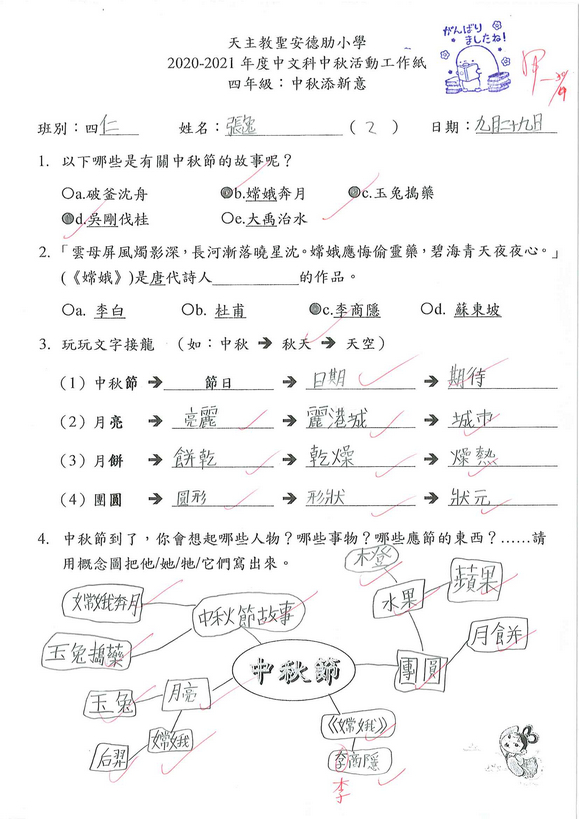 天主教聖安德肋小學
2020-2021 年度中文科中秋活動工作紙
四年級：中秋添新意
がんばり
ましたね！
甲-
班別：四仁 姓名：張兔 ( 2 ) 日期：九月二十九日
1. 以下哪些是有關中秋節的故事呢？
a.破釜沈舟 b.嫦娥奔月 c.玉兔搗藥
d.吳剛伐桂 e.大禹治水
2.「雲母屏風燭影深，長河漸落曉星沈。嫦娥應悔偷靈藥，碧海青天夜夜心。」
(《嫦娥》)是唐代詩人__________的作品。
a. 李白 b. 杜甫 c.李商隱 d. 蘇東坡
3. 玩玩文字接龍 （如：中秋 ➔ 秋天 ➔ 天空）
（1）中秋節 ➔ 節日 ➔ 日期 ➔ 期待
（2）月亮 ➔ 亮麗 ➔ 麗港城 ➔ 城市
（3）月餅 ➔ 餅乾 ➔ 乾燥 ➔ 燥熱
（4）團圓 ➔ 圓形 ➔ 形狀 ➔ 狀元
4. 中秋節到了，你會想起哪些人物？哪些事物？哪些應節的東西？……請
用概念圖把他/她/牠/它們寫出來。
嫦娥奔月
中秋節故事
玉兔搗藥
水果
蘋果
月餅
團圓
中秋節
玉兔
月亮
嫦娥
后羿
《嫦娥》
李商隱
李